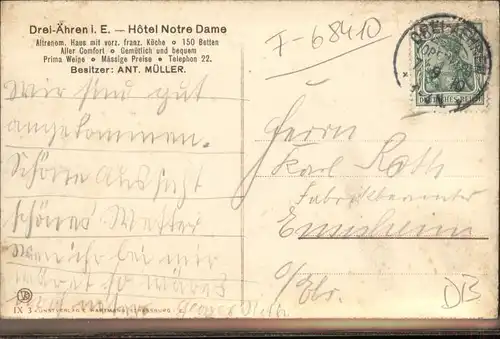 Drei-Ähren i. E. — Hôtel Notre Dame
Altrenom. Haus mit vorz. franz. Küche • 150 Betten
Aller Comfort • Gemütlich und bequem
Prima Weine • Mässige Preise • Telephon 22.
Besitzer: ANT. MÜLLER.
Wir sind gut
angekommen.
Schöne Aussicht
schönes Wetter
Wenn ihr bei mir
wäret so wäre
IX 3 KUNSTVERLAG
STRASSBURG
F-68410
DEUTSCHES REICH
Herrn
Karl Roth
Ensisheim
O/Els.
DB